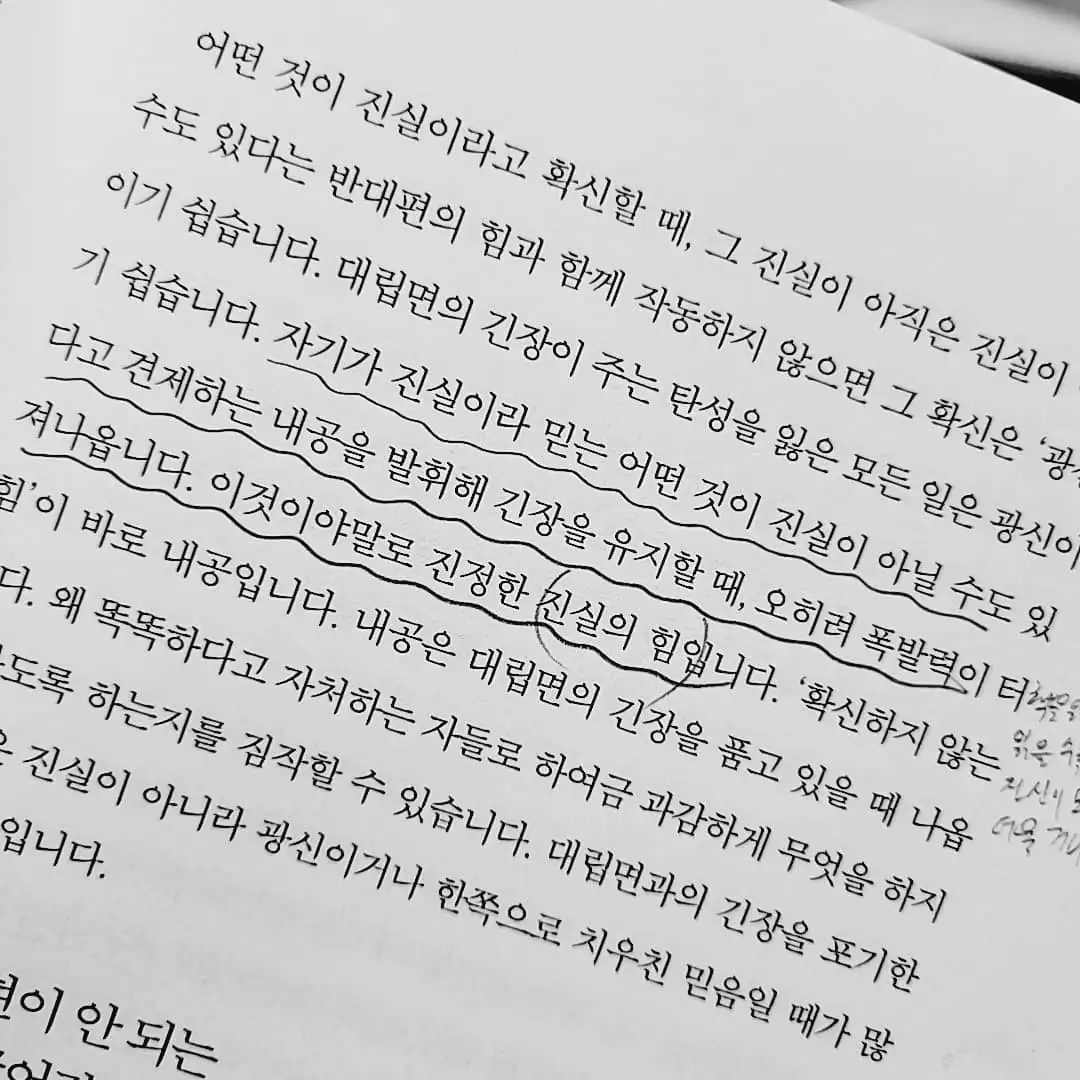 어떤 것이 진실이라고 확신할 때, 그 진실이 아직은 진실이
수도 있다는 반대편의 힘과 함께 작동하지 않으면 그 확신은 ‘광신
이기 쉽습니다. 대립면의 긴장이 주는 탄성을 잃은 모든 일은 광신이
기 쉽습니다. 자기가 진실이라 믿는 어떤 것이 진실이 아닐 수도 있
다고 견제하는 내공을 발휘해 긴장을 유지할 때, 오히려 폭발력이 터
져나옵니다. 이것이야말로 진정한 진실의 힘입니다. ‘확신하지 않는
힘’이 바로 내공입니다. 내공은 대립면의 긴장을 품고 있을 때 나옵
다. 왜 똑똑하다고 자처하는 자들로 하여금 과감하게 무엇을 하지
도록 하는지를 짐작할 수 있습니다. 대립면과의 긴장을 포기한
은 진실이 아니라 광신이거나 한쪽으로 치우친 믿음일 때가 많
입니다.
이 안 되는
읽을